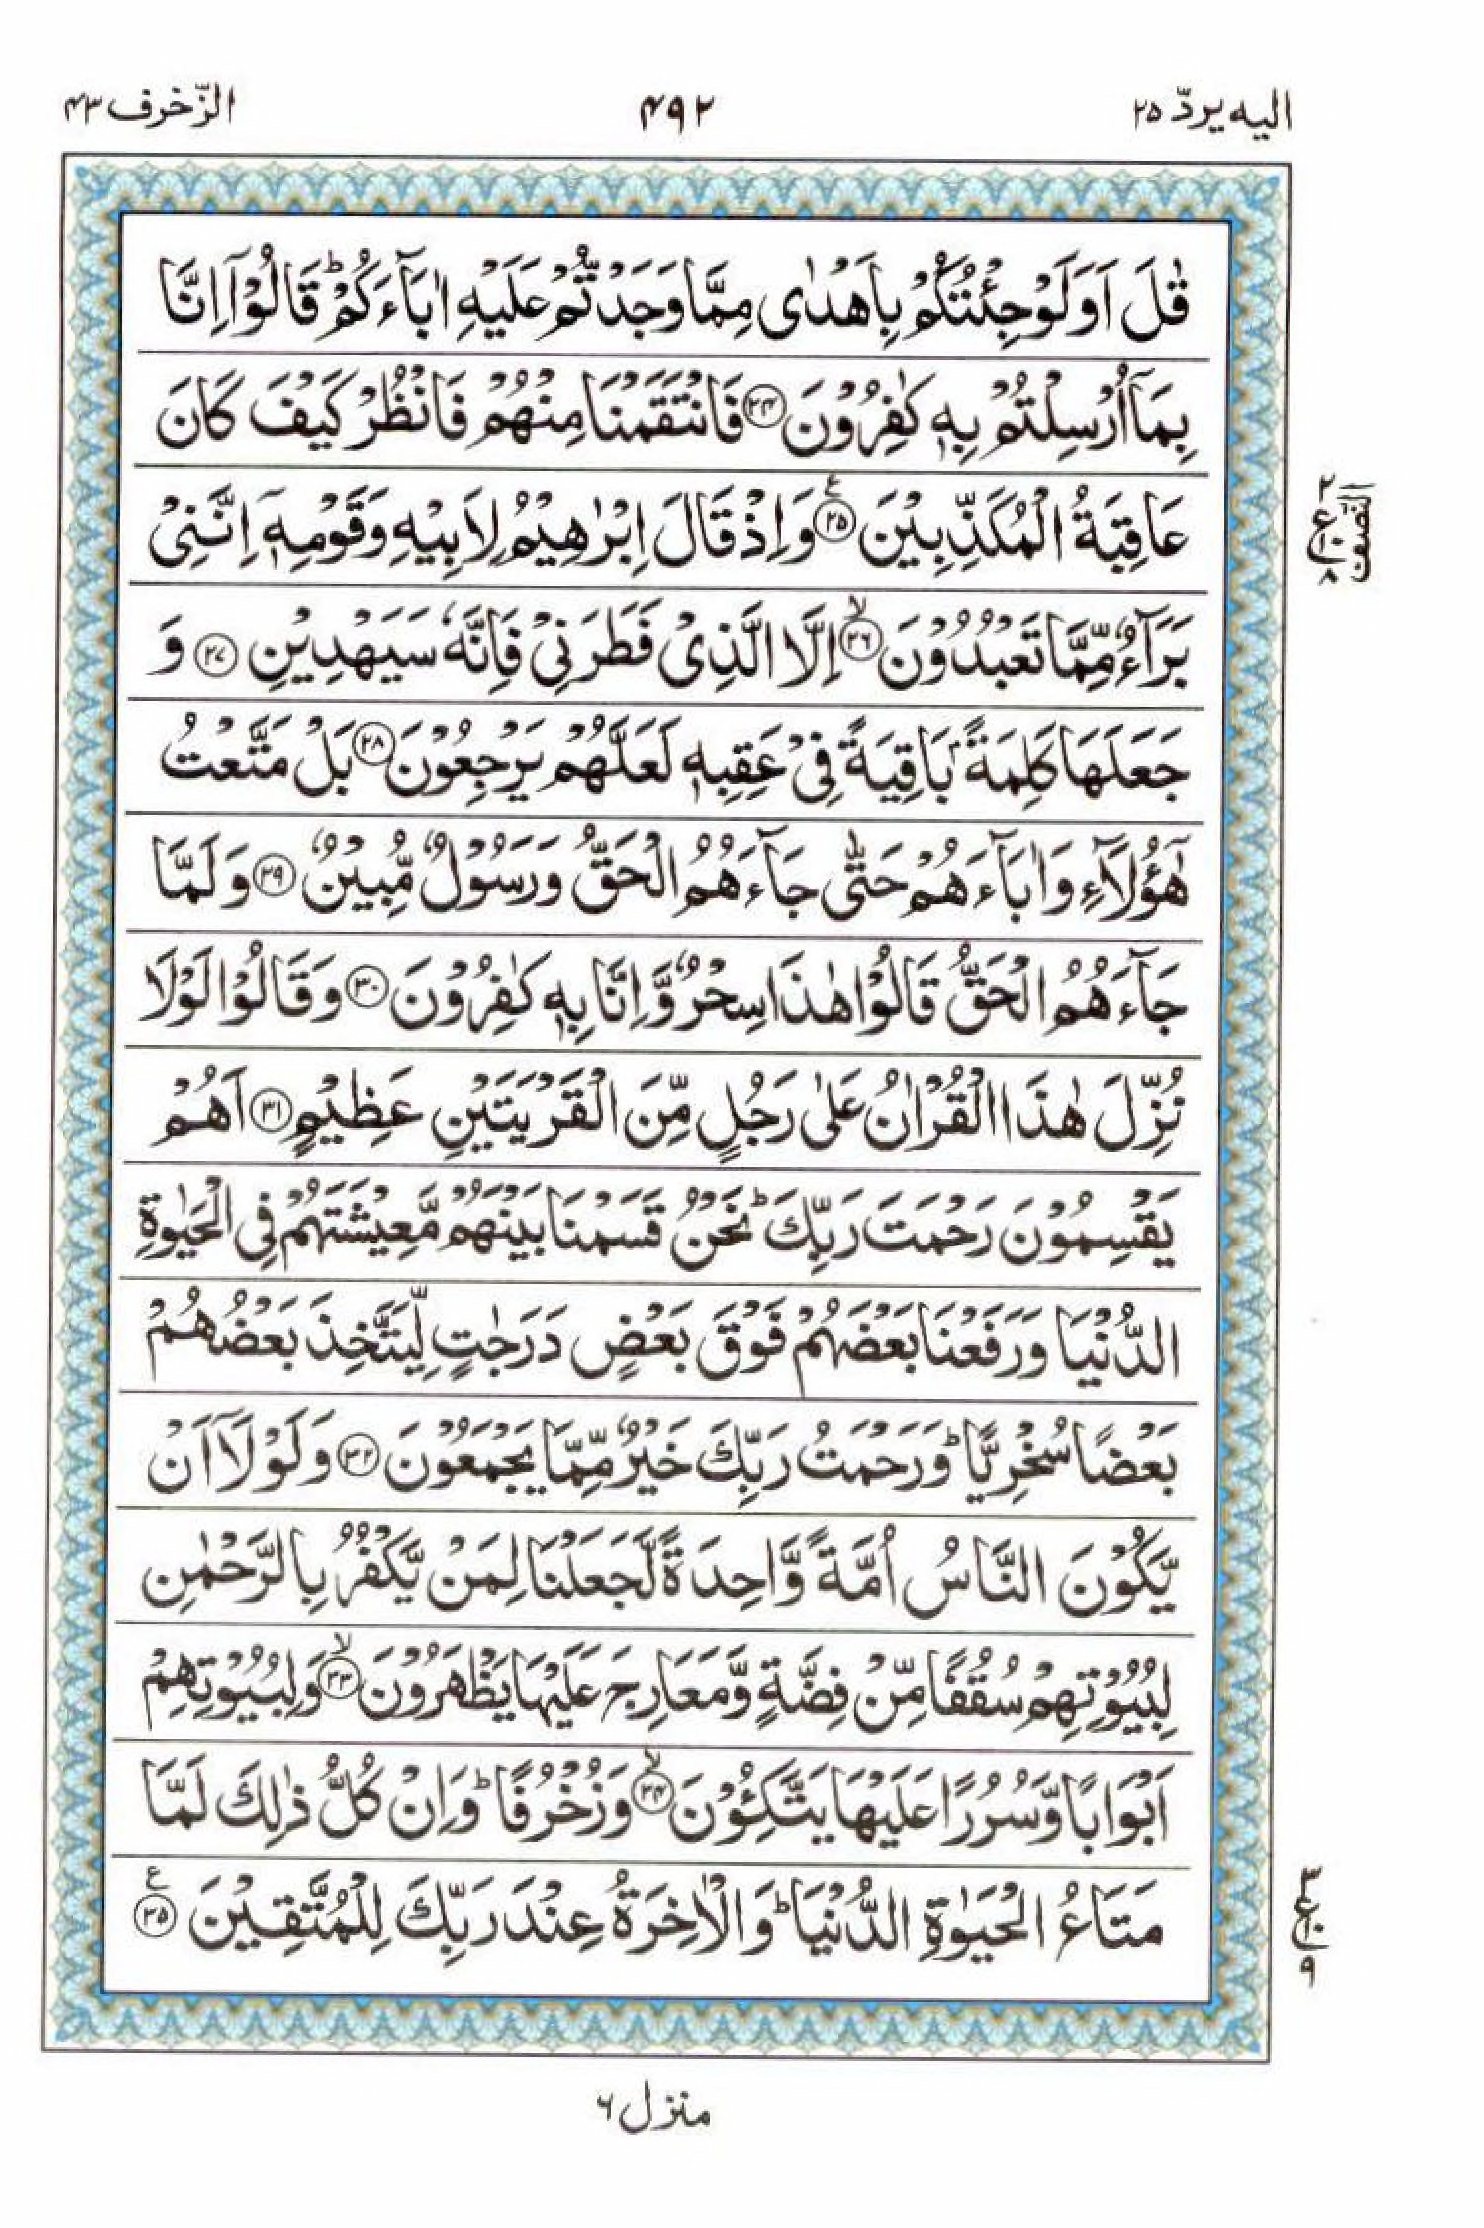 الیه یردّ ۲۵
۴۹۲
الزّخرف ۴۳
قٰلَ اَوَلَوْ جِئْتُكُمْ بِاَهْدٰى مِمَّا وَجَدْتُّمْ عَلَیْهِ اٰبَآءَكُمْؕ قَالُوْۤا اِنَّا
بِمَاۤ اُرْسِلْتُمْ بِهٖ كٰفِرُوْنَ ۲۴ فَانْتَقَمْنَا مِنْهُمْ فَانْظُرْ كَیْفَ كَانَ
عَاقِبَةُ الْمُكَذِّبِیْنَ ۲۵ ع وَ اِذْ قَالَ اِبْرٰهِیْمُ لِاَبِیْهِ وَ قَوْمِهٖۤ اِنَّنِیْ
النصف
۲
ع
۱۰
۸
بَرَآءٌ مِّمَّا تَعْبُدُوْنَ ۲۶ۙ اِلَّا الَّذِیْ فَطَرَنِیْ فَاِنَّهٗ سَیَهْدِیْنِ ۲۷ وَ
جَعَلَهَا كَلِمَةًۢ بَاقِیَةً فِیْ عَقِبِهٖ لَعَلَّهُمْ یَرْجِعُوْنَ ۲۸ بَلْ مَتَّعْتُ
هٰۤؤُلَآءِ وَ اٰبَآءَهُمْ حَتّٰى جَآءَهُمُ الْحَقُّ وَ رَسُوْلٌ مُّبِیْنٌ ۲۹ وَ لَمَّا
جَآءَهُمُ الْحَقُّ قَالُوْا هٰذَا سِحْرٌ وَّ اِنَّا بِهٖ كٰفِرُوْنَ ۳۰ وَ قَالُوْا لَوْلَا
نُزِّلَ هٰذَا الْقُرْاٰنُ عَلٰى رَجُلٍ مِّنَ الْقَرْیَتَیْنِ عَظِیْمٍ ۳۱ اَهُمْ
یَقْسِمُوْنَ رَحْمَتَ رَبِّكَؕ نَحْنُ قَسَمْنَا بَیْنَهُمْ مَّعِیْشَتَهُمْ فِی الْحَیٰوةِ
الدُّنْیَا وَ رَفَعْنَا بَعْضَهُمْ فَوْقَ بَعْضٍ دَرَجٰتٍ لِّیَتَّخِذَ بَعْضُهُمْ
بَعْضًا سُخْرِیًّاؕ وَ رَحْمَتُ رَبِّكَ خَیْرٌ مِّمَّا یَجْمَعُوْنَ ۳۲ وَ لَوْلَاۤ اَنْ
یَّكُوْنَ النَّاسُ اُمَّةً وَّاحِدَةً لَّجَعَلْنَا لِمَنْ یَّكْفُرُ بِالرَّحْمٰنِ
لِبُیُوْتِهِمْ سُقُفًا مِّنْ فِضَّةٍ وَّ مَعَارِجَ عَلَیْهَا یَظْهَرُوْنَ ۳۳ۙ وَ لِبُیُوْتِهِمْ
اَبْوَابًا وَّ سُرُرًا عَلَیْهَا یَتَّكِـُٔوْنَ ۳۴ۙ وَ زُخْرُفًاؕ وَ اِنْ كُلُّ ذٰلِكَ لَمَّا
مَتَاعُ الْحَیٰوةِ الدُّنْیَاؕ وَ الْاٰخِرَةُ عِنْدَ رَبِّكَ لِلْمُتَّقِیْنَ ۳۵ ع
۳
ع
۱۰
۹
منزل ۶